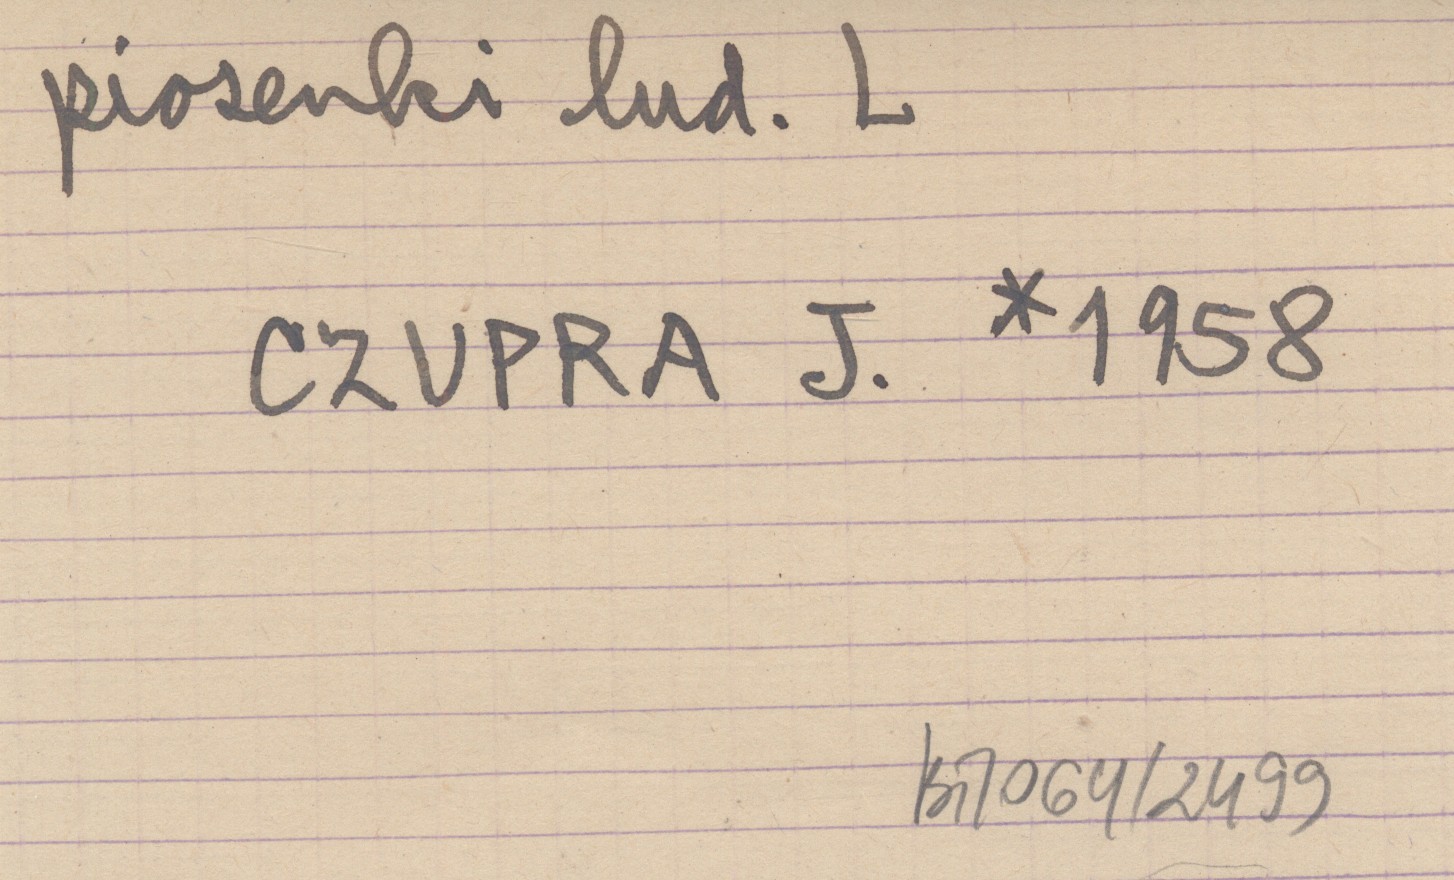 piosenki lud. L
CZUPRA J. *1958
064/2499